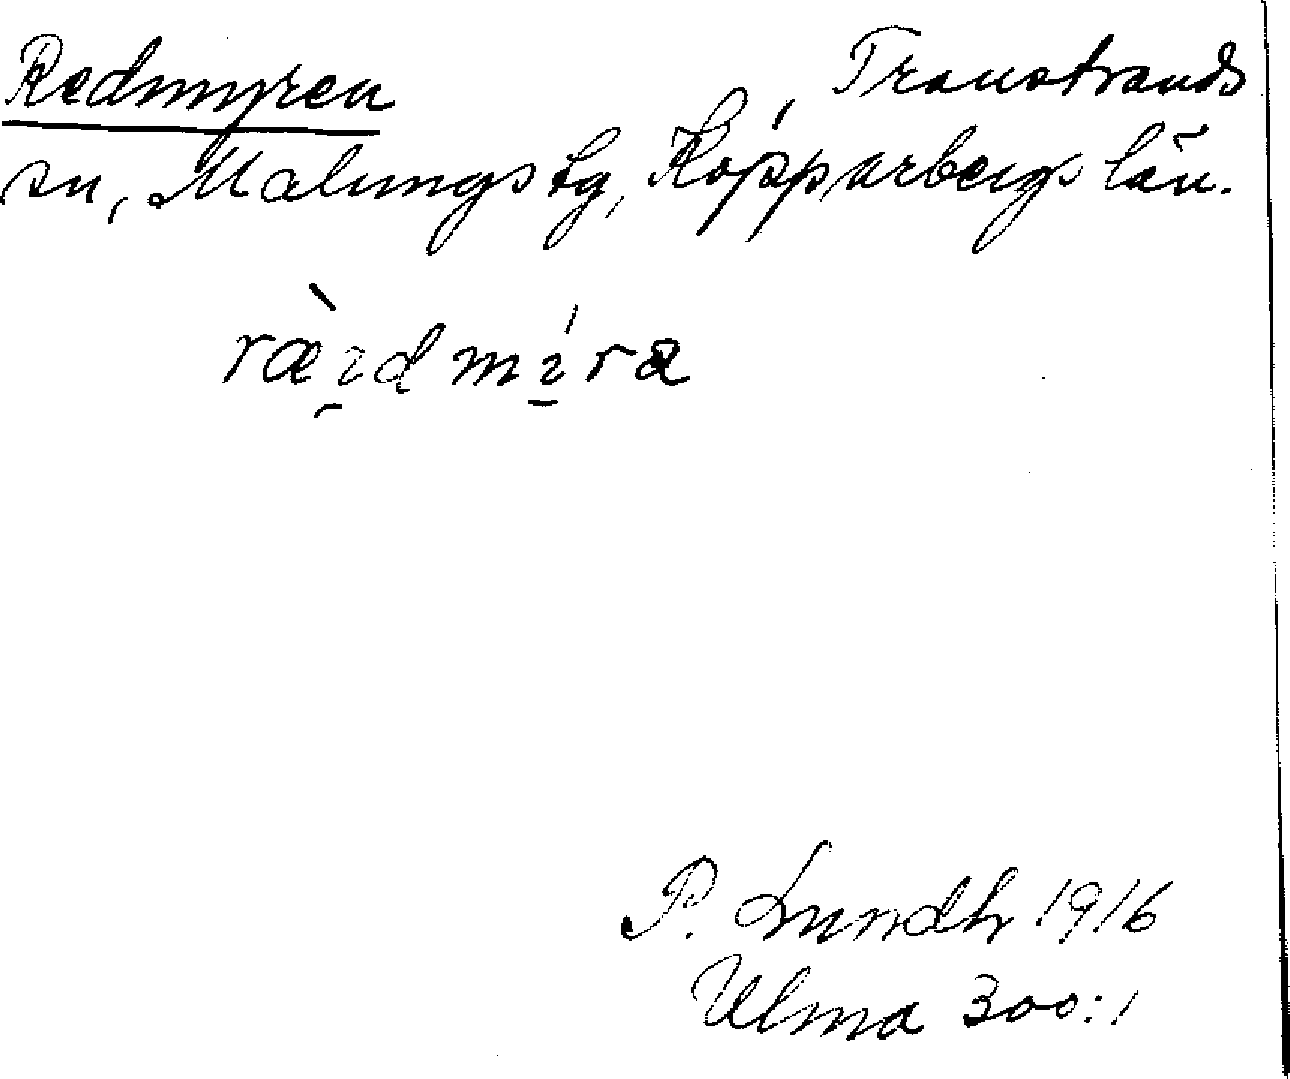 Redmyren Transtrands
sn, Malungs tg, Kopparbergs län.
ræ̀ɪdmɪ́ra
P. Lundh 1916
Ulma 300:1